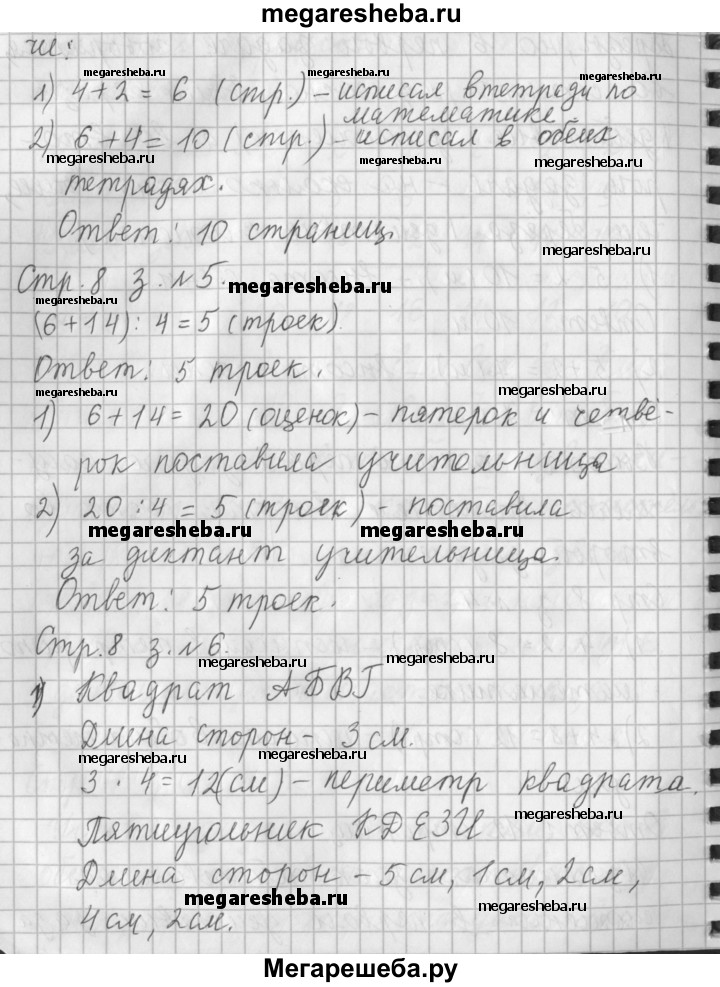 megaresheba.ru
ли:
megaresheba.ru megaresheba.ru megaresheba.ru
1) 4+2 = 6 (стр.) – исписал в тетради по
математике
2) 6+4 = 10 (стр.) – исписал в обеих
megaresheba.ru megaresheba.ru megaresheba.ru
тетрадях.
Ответ: 10 страниц.
megaresheba.ru
Стр. 8 з. №5.
megaresheba.ru
megaresheba.ru
(6+14) : 4 = 5 (троек)
Ответ: 5 троек.
megaresheba.ru megaresheba.ru
1) 6+14 = 20 (оценок) – пятерок и четвё-
рок поставила учительница
2) 20 : 4 = 5 (троек) – поставила
megaresheba.ru megaresheba.ru
за диктант учительница.
Ответ: 5 троек.
Стр. 8 з. №6.
megaresheba.ru megaresheba.ru
1) Квадрат АБВГ
Длина сторон – 3 см.
megaresheba.ru megaresheba.ru
3 · 4 = 12(см) – периметр квадрата.
megaresheba.ru
Пятиугольник КДЕЗИ
Длина сторон – 5 см, 1 см, 2 см,
megaresheba.ru megaresheba.ru
4 см, 2 см.
Мегарешеба.ру